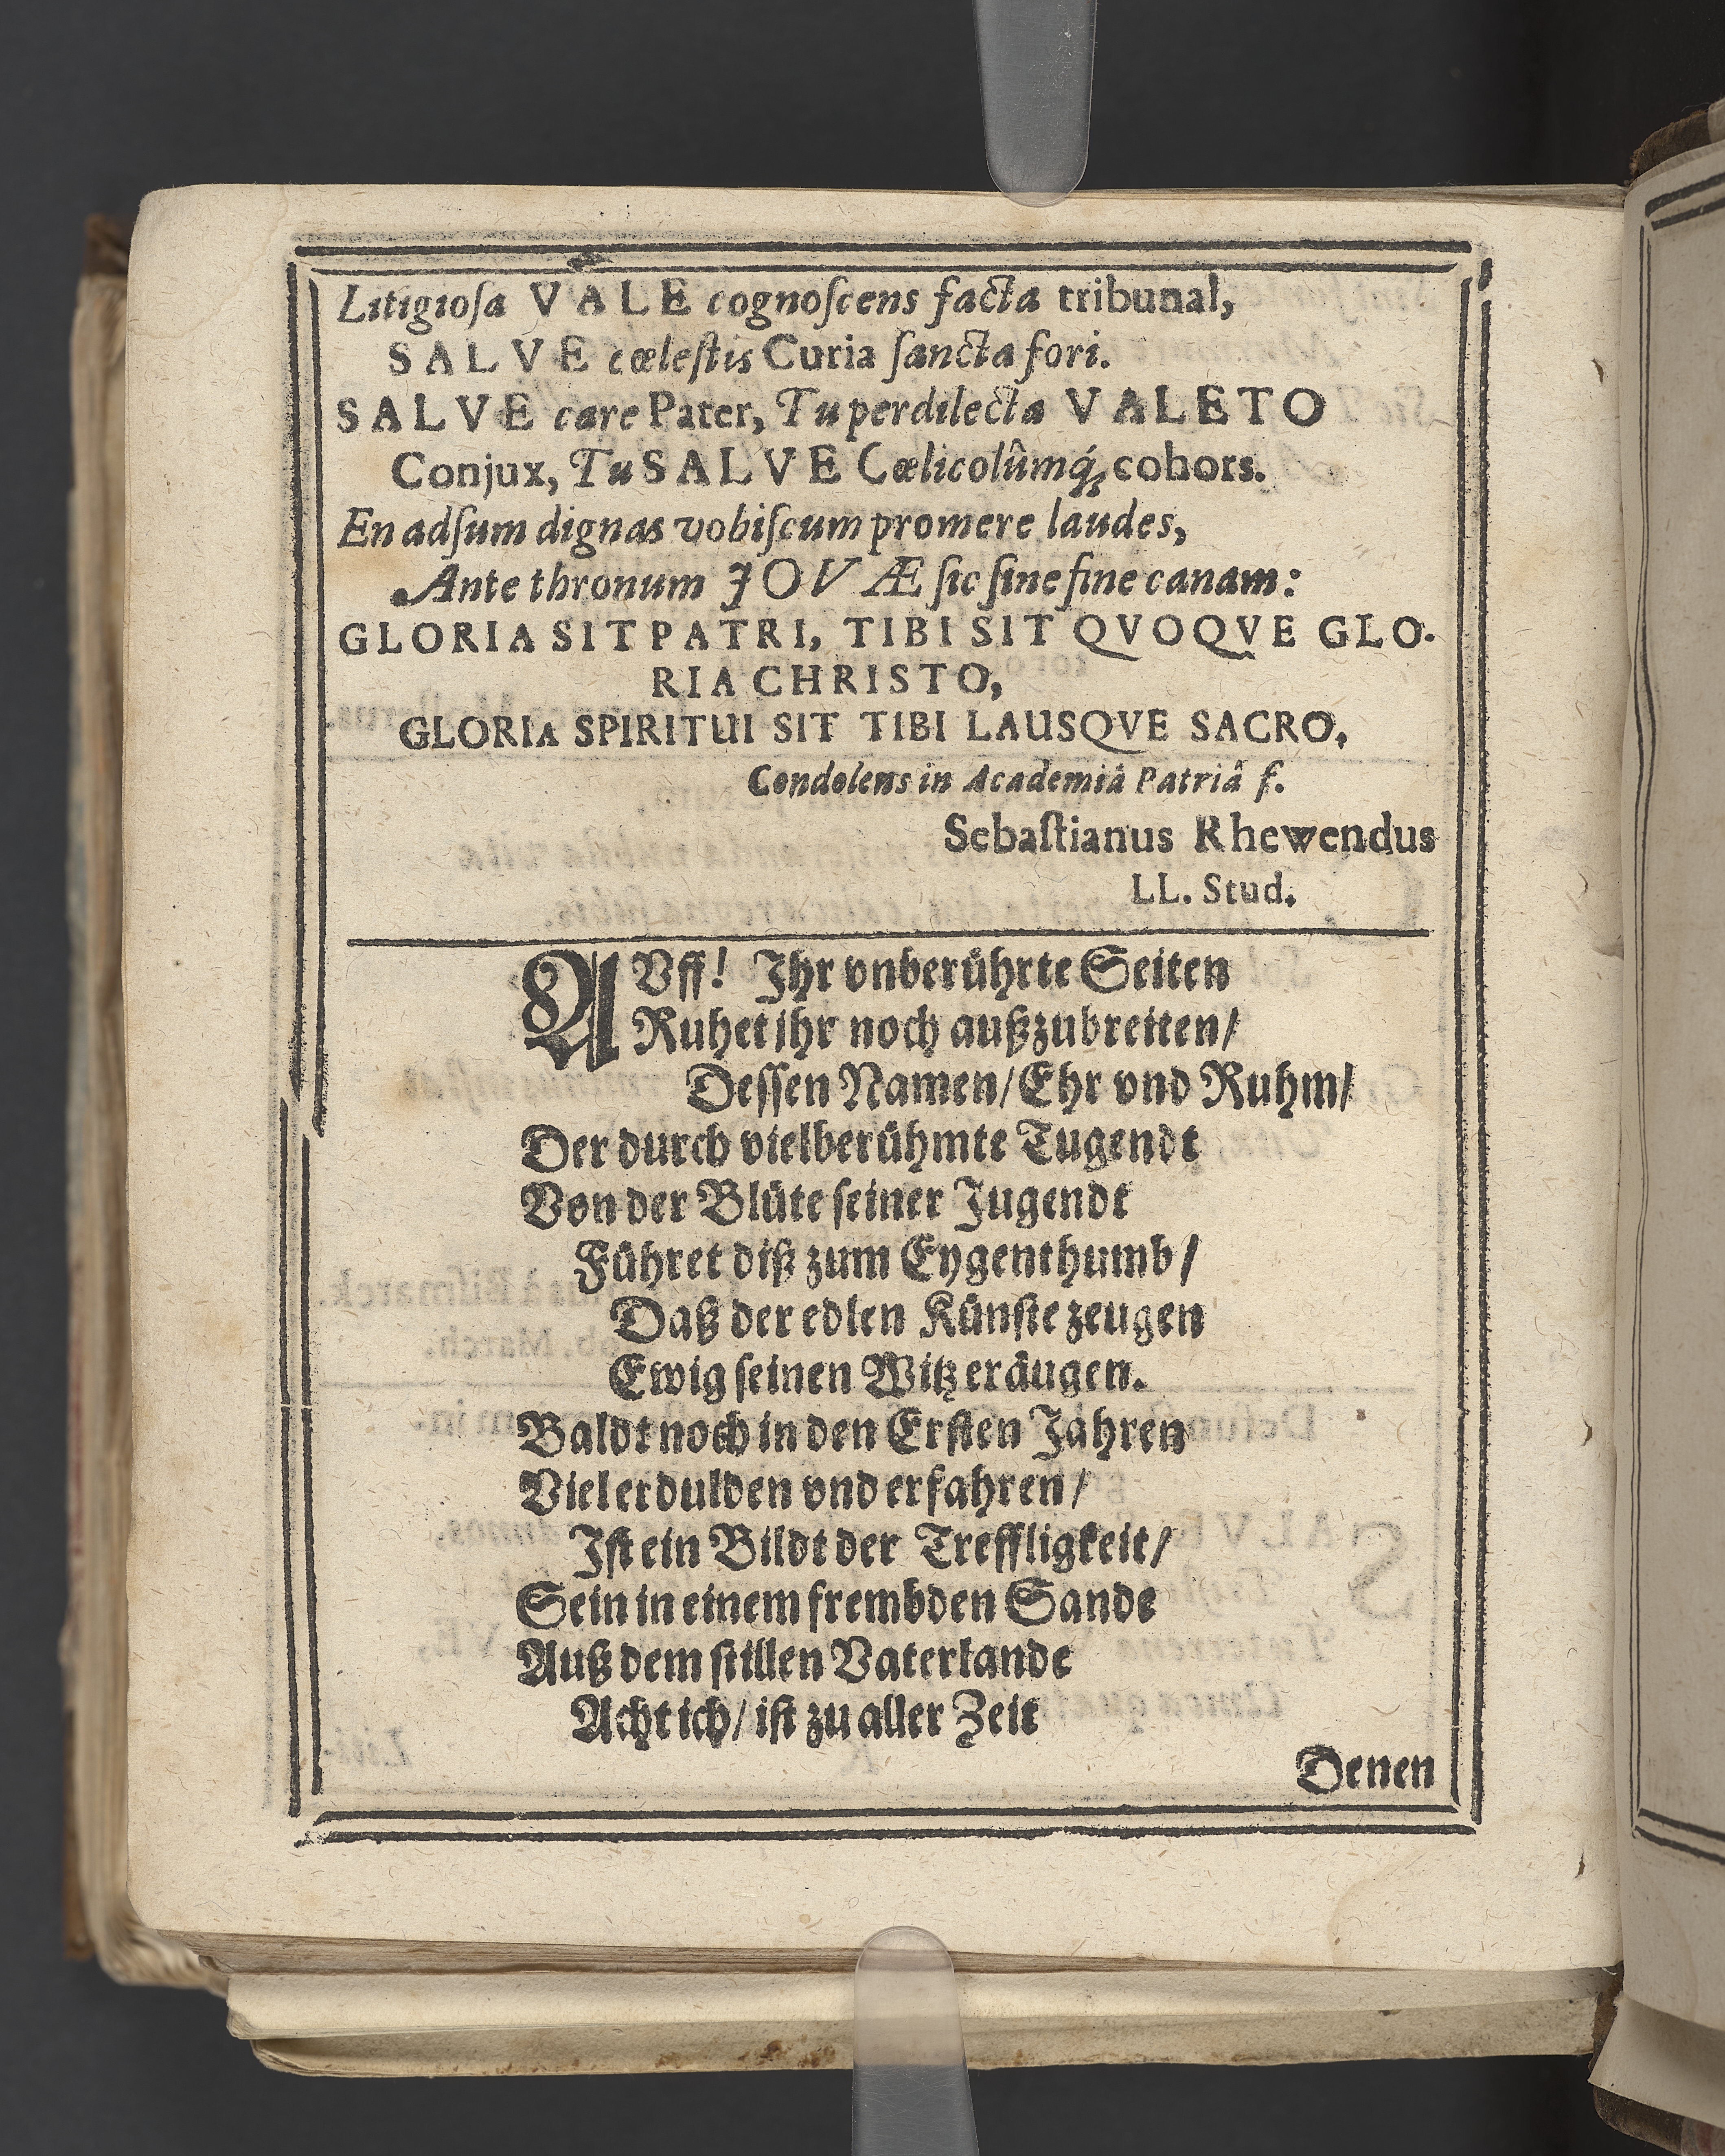 Litigioſa VALE cognoſcens facta tribunal,
SALVE cœleſtis Curia ſancta fori.
SALVE care Pater, Tu perdilecta VALETO
Conjux, Tu SALVE Cœlicolûmq́; cohors.
En adſum dignas vobiſcum promere laudes,
Ante thronum JOVÆ ſic ſine fine canam:
GLORIA SIT PATRI, TIBI SIT QVOQVE GLO-
RIA CHRISTO,
GLORIA SPIRITUI SIT TIBI LAUSQVE SACRO,
Condolens in Academiâ Patriâ f.
Sebaſtianus Rhewendus
LL. Stud.
AVff! Ihr vnberührte Seiten
Ruhet ihr noch außzubreiten/
Deſſen Namen/ Ehr vnd Ruhm/
Der durch vielberühmte Tugendt
Von der Blüte ſeiner Jugendt
Führet diß zum Eygenthumb/
Daß der edlen Künſte zeugen
Ewig ſeinen Witz eräugen.
Baldt noch in den Erſten Jahren
Viel erdulden vnd erfahren/
Iſt ein Bildt der Treffligkeit/
Sein in einem frembden Sande
Auß dem ſtillen Vaterlande
Acht ich/ iſt zu aller Zeit
Denen